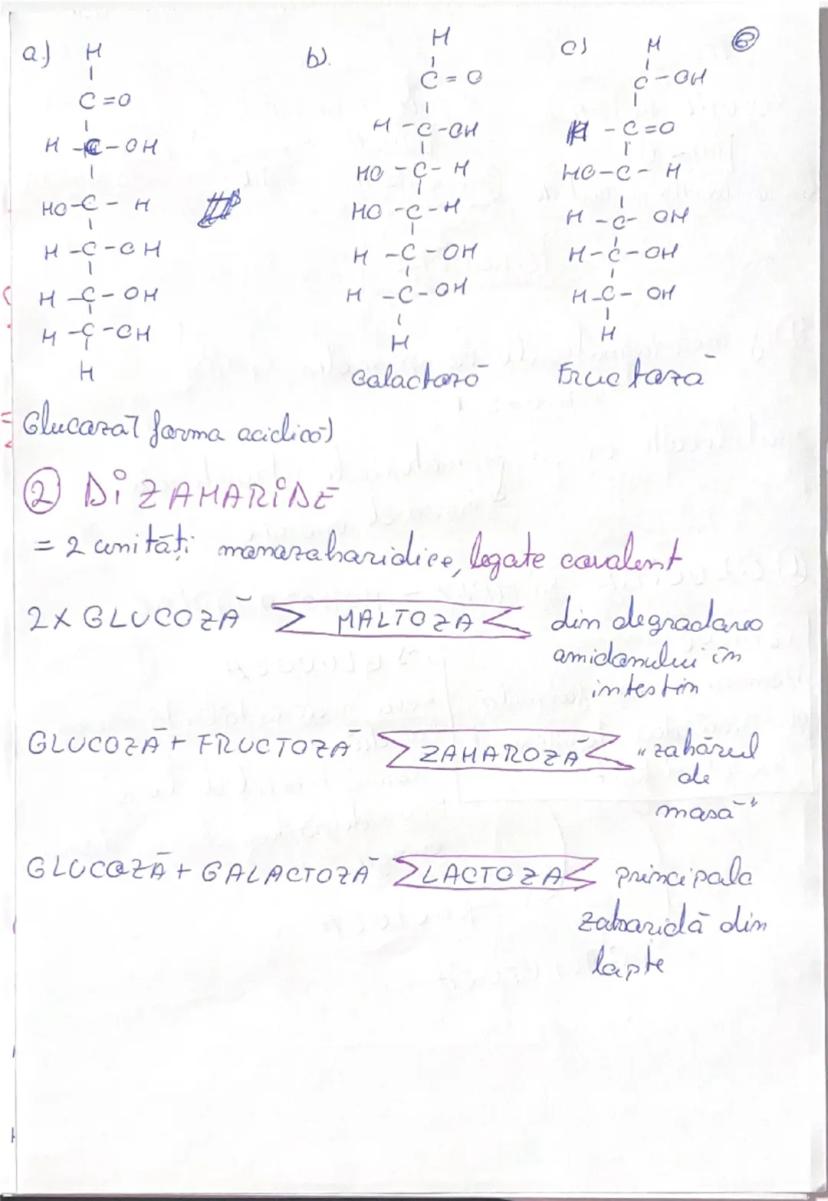 6
a.)
H
C=O
H-C-OH
HO-C-H
H-C-OH
H-C-OH
H-C-OH
H
Glucoza (forma aciclică)
b).
H
C=O
H-C-OH
HO-C-H
HO-C-H
H-C-OH
H-C-OH
H
Galactoză
c)
H
C-OH
C=O
HO-C-H
H-C-OH
H-C-OH
H-C-OH
H
Fructoză
2 DIZAHARIDE
= 2 unități monozaharidice, legate covalent
2X GLUCOZĂ MALTOZA din degradarea
amidonului în
intestin
GLUCOZĂ + FRUCTOZĂ ZAHAROZĂ „zahărul
de
masă"
GLUCOZĂ + GALACTOZĂ LACTOZA principala
zaharidă din
lapte